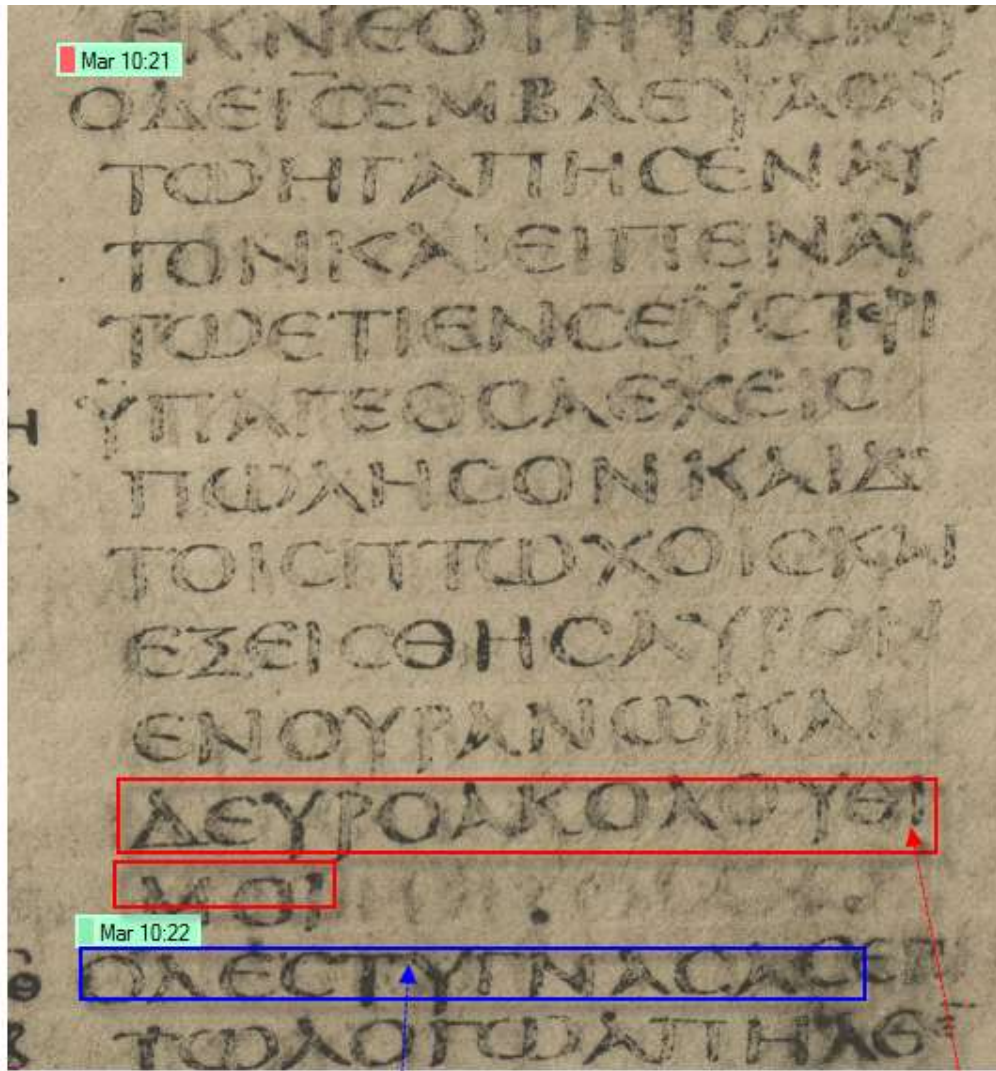 ΕΚΝΕΟΤΗΤΟϹΜΟΥ
Mar 10:21
ΟΔΕΙ͞ϹΕΜΒΛΕΨΑϹΑΥ
ΤΩΗΓΑΠΗϹΕΝΑΥ
ΤΟΝΚΑΙΕΙΠΕΝΑΥ
ΤΩΕΤΙΕΝϹΕΫϹΤΕΡΙ
ΫΠΑΓΕΟϹΑΕΧΕΙϹ
ΠΩΛΗϹΟΝΚΑΙΔ
ΤΟΙϹΠΤΩΧΟΙϹΚΑΙ
ΕΞΕΙϹΘΗϹΑΥΡΟΝ
ΕΝΟΥΡΑΝΩΚΑΙ
ΔΕΥΡΟΑΚΟΛΟΥΘΙ
ΜΟΙ
Mar 10:22
ΟΔΕϹΤΥΓΝΑϹΑϹΕΠΙ
ΤΩΛΟΓΩΑΠΗΛΘΕ͞